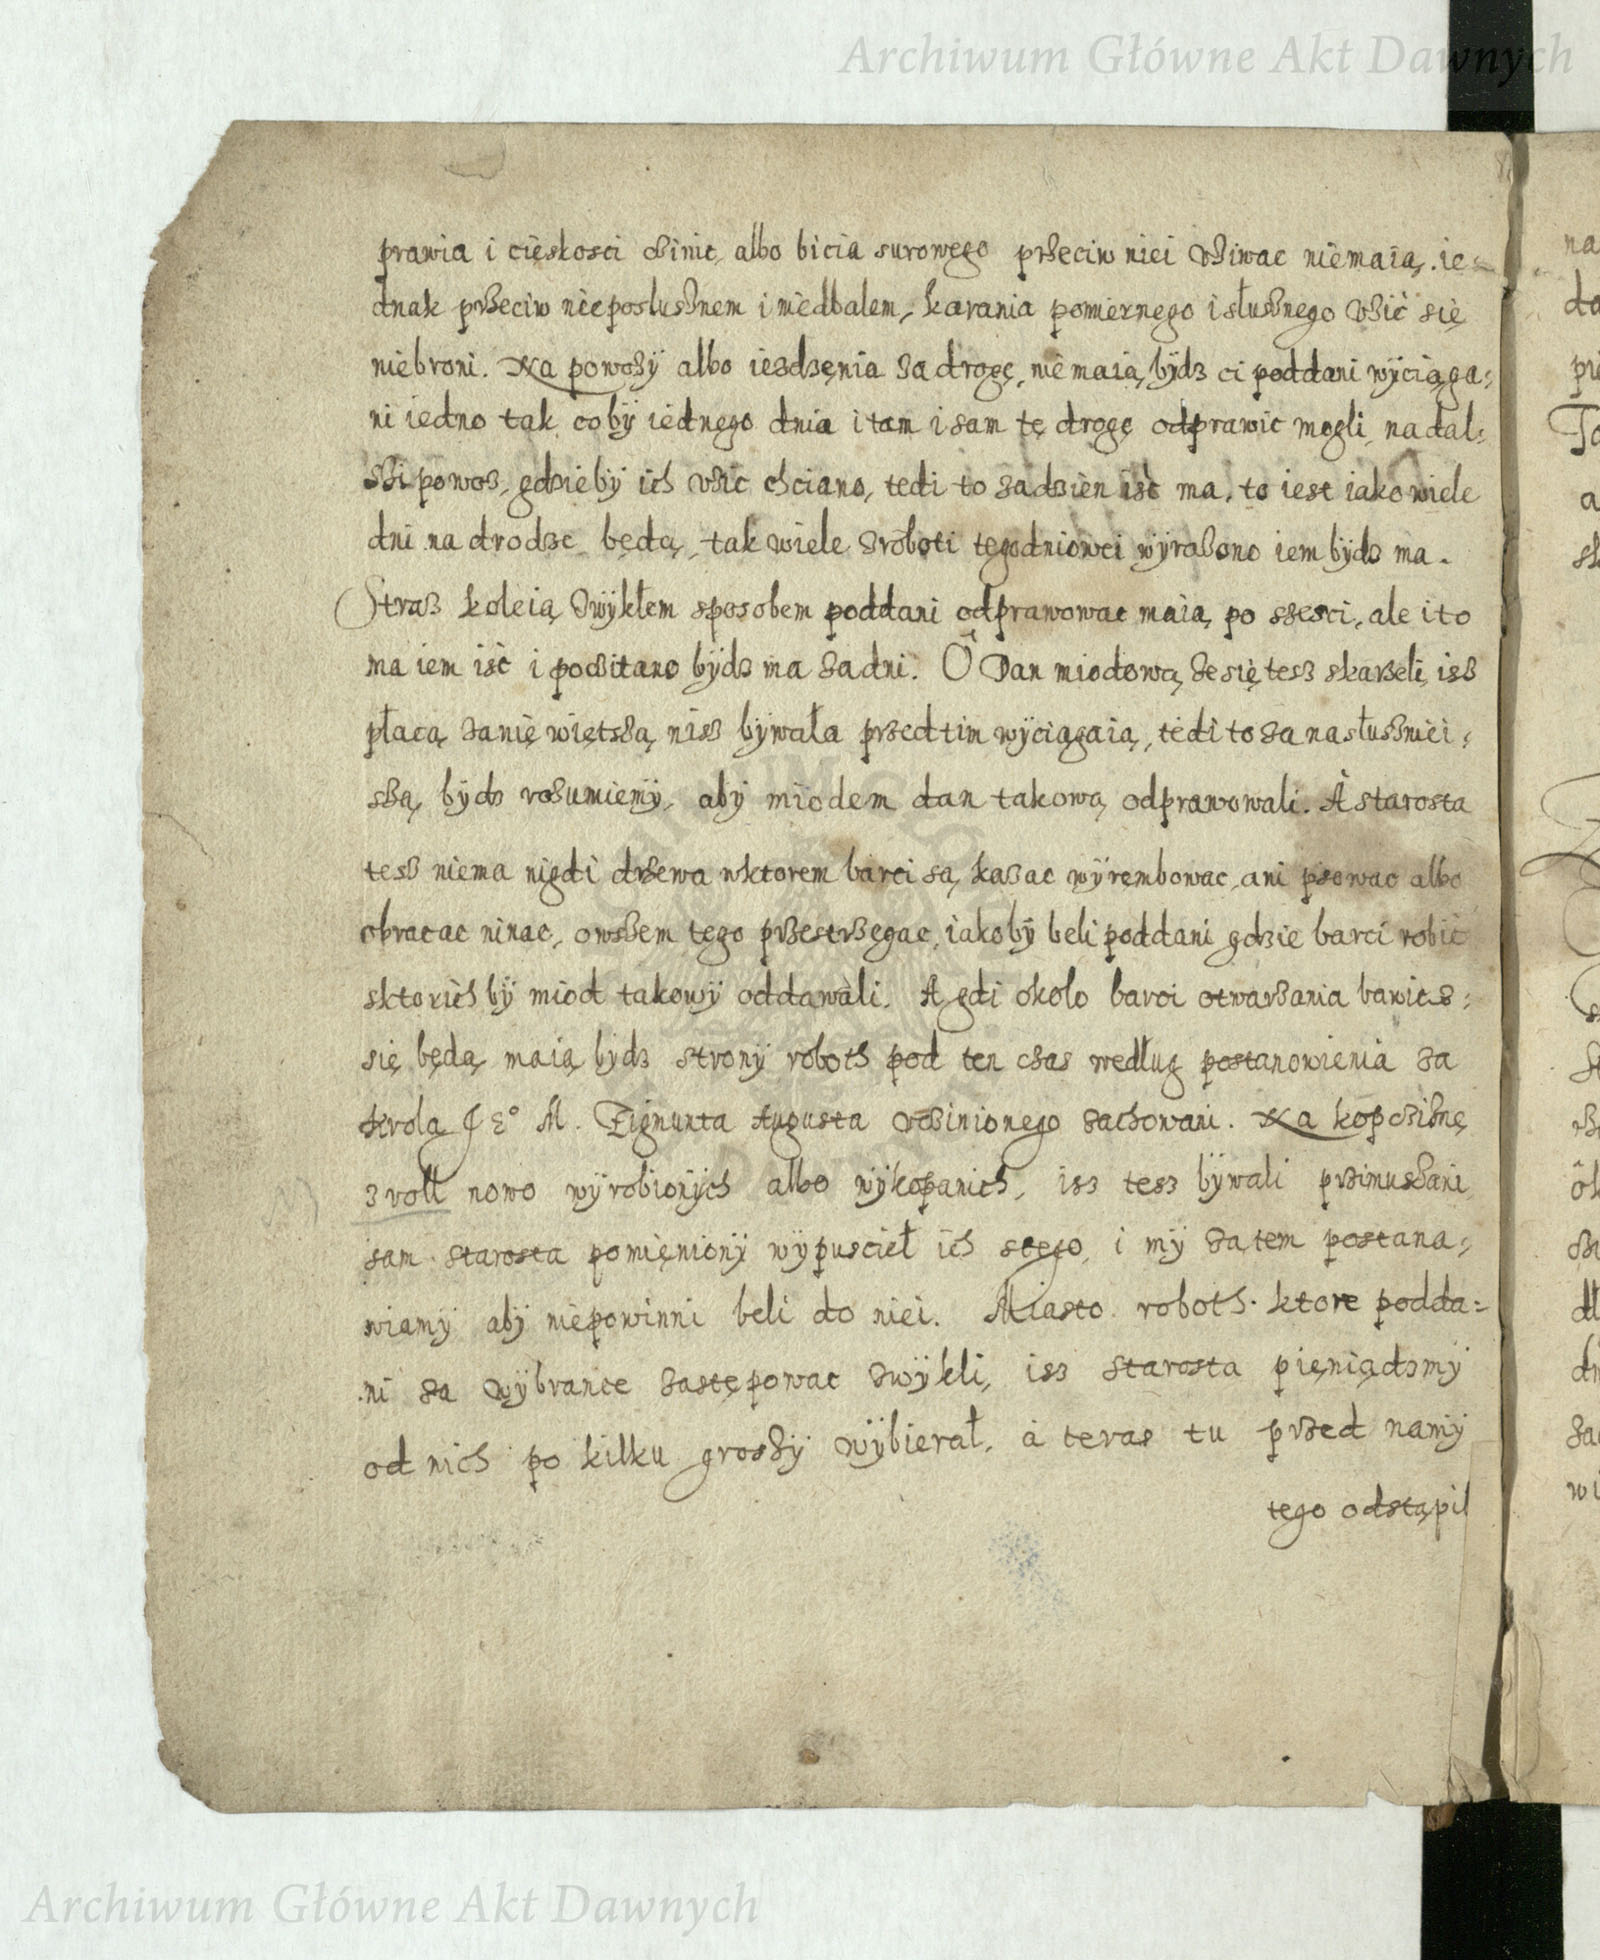 Archiwum Główne Akt Dawnych
prawia i cięskosci czinic, albo bicia surowego przeciw niei vziwac niemaią. ie=
dnak przeciw nieposlusznem i niedbalem, karania pomiernego i słusznego vzić się
niebroni. Na powozÿ albo iezdzęnia za drogę, niemaią bÿdz ci poddani wÿciąga=
ni iedno tak cobÿ iednego dnia i tam i sam tę drogę odprawic mogli, na dal=
szi powoz, gdziebÿ ich vzic chciano, tedi to zadzien isc ma, to iest iako wiele
dni na drodze będą, tak wiele zroboti tegodniowei wÿrazono iem bÿdz ma.
Straz koleią zwÿkłem sposobem poddani odprawowac maią po szesci, ale i to
ma iem isc i poczitano bÿdz ma za dni. O Dan miodową ze się tesz skarzeli, isz
płacą zanię więtszą nisz bÿwała przedtim wÿciągaią, tedi to za nasłuszniei=
szą bÿdz rozumiemÿ, abÿ miodem dan takową odprawowali. A starosta
tesz niema nigdi drzewa wktorem barci są, kazac wÿrembowac, ani psowac albo
obracac ninac, owszem tego przestrzęgac, iakobÿ beli poddani gdzie barci robic
sktorich bÿ miod takowÿ oddawali. A gdi okolo barci otwarzania bawic=
się będą maią bÿdz stronÿ roboth pod ten czas według postanowienia za
krola J E° M. Zigmunta Augusta vczinionego zachowani. Na kopcziznę
z roll nowo wÿrobionÿch albo wÿkopanich, isz tesz bÿwali przimuszani
sam starosta pomięnionÿ wÿpuscieł ich stego, i mÿ zatem postana=
wiamÿ abÿ niepowinni beli do niei. Miasto roboth ktore podda=
ni za wÿbrance zastępowac zwÿkli, isz starosta pięniądzmÿ
od nich po kilku groszÿ wÿbierał, a teras tu przed namÿ
tego odstąpil
Archiwum Główne Akt Dawnych